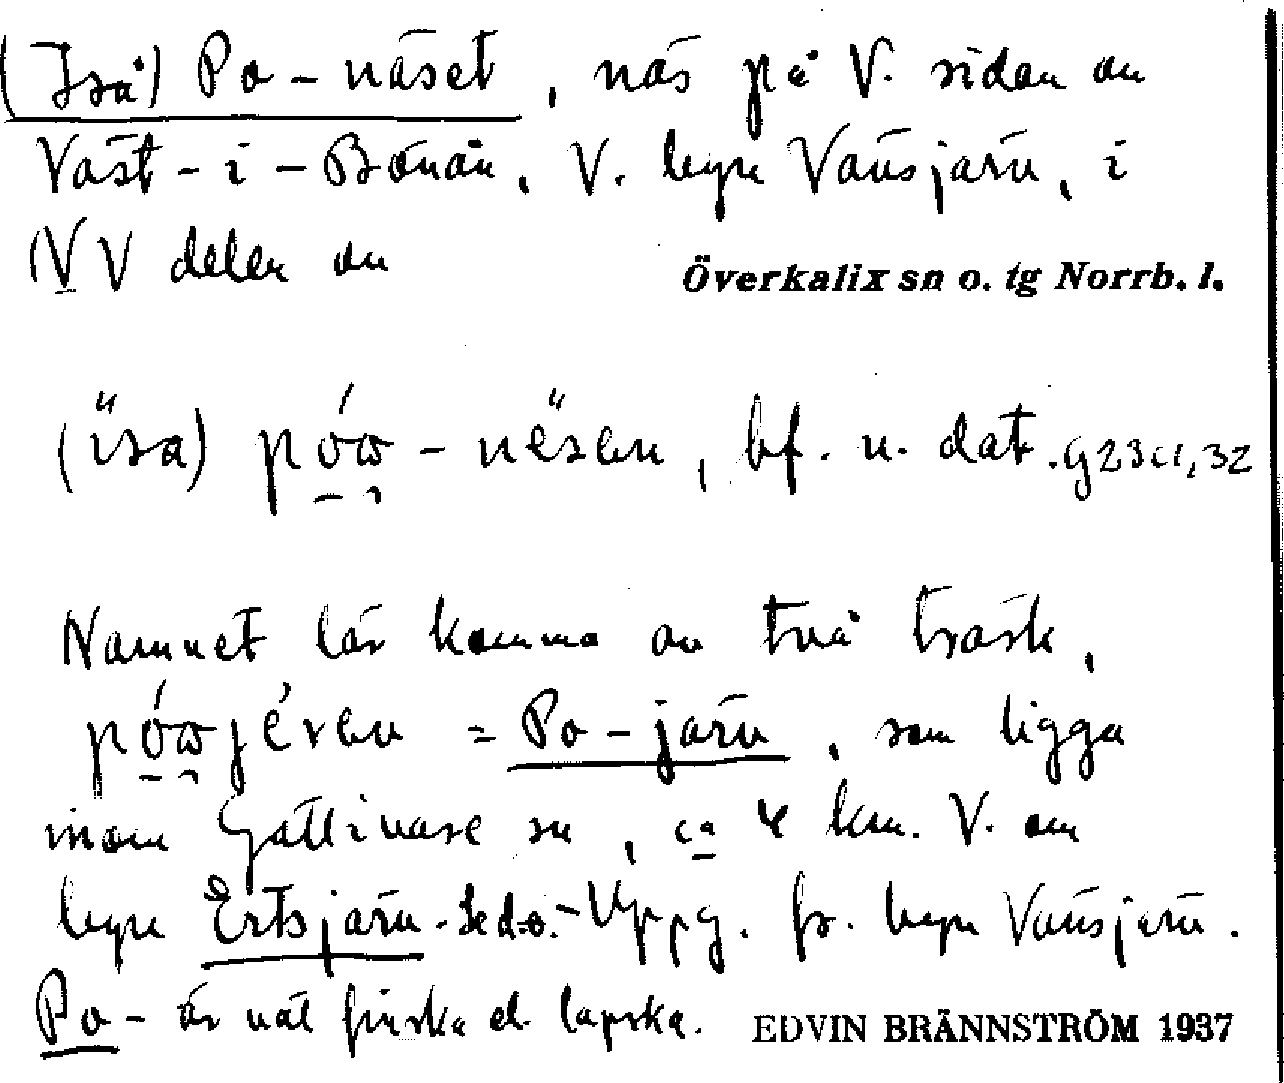 (Iså) Po-näset, näs på V. sidan av
Väst-i-Bönån, V. byn Vänsjärv, i
NV delen av Överkalix sn o. tg Norrb. l.
(ïsa) póω-nësen, bf. u. dat. g23c1,32
Namnet lär komma av två träsk,
póωjé̇ven = Po-järv, som ligga
inom Gällivare sn, ca 4 km. V. om
byn Ertsjärv. Se d.o. - Uppg. fr. byn Vänsjärv.
Po- är väl finska el. lapska. EDVIN BRÄNNSTRÖM 1937